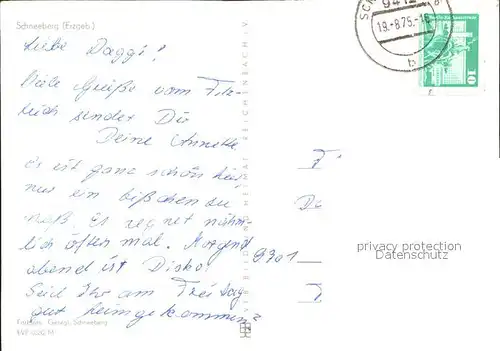 Schneeberg (Erzgeb.)
Liebe Daggi!
Viele Grüße vom Filz-
teich sendet Dir
Deine Annette
Es ist ganz schön hier,
nur ein bißchen zu
naß. Es regnet nähm-
lich öften mal. Morgend
abend ist Disko.
Seid Ihr am Freitag
gut heimgekommen?
BILD UND HEIMAT REICHENBACH i. V.
9412
19.-8.75.-16
b
10
9301
privacy protection
Datenschutz